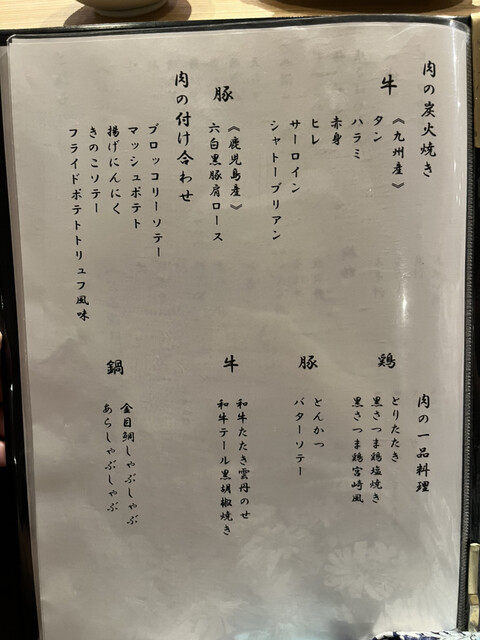 肉の炭火焼き
牛
《九州産》
タン
ハラミ
赤身
ヒレ
サーロイン
シャトーブリアン
豚
《鹿児島産》
六白黒豚肩ロース
肉の付け合わせ
ブロッコリーソテー
マッシュポテト
揚げにんにく
きのこソテー
フライドポテトトリュフ風味
肉の一品料理
鶏
とりたたき
黒さつま鶏塩焼き
黒さつま鶏宮崎風
豚
とんかつ
バターソテー
牛
和牛たたき雲丹のせ
和牛テール黒胡椒焼き
鍋
金目鯛しゃぶしゃぶ
あらしゃぶしゃぶ